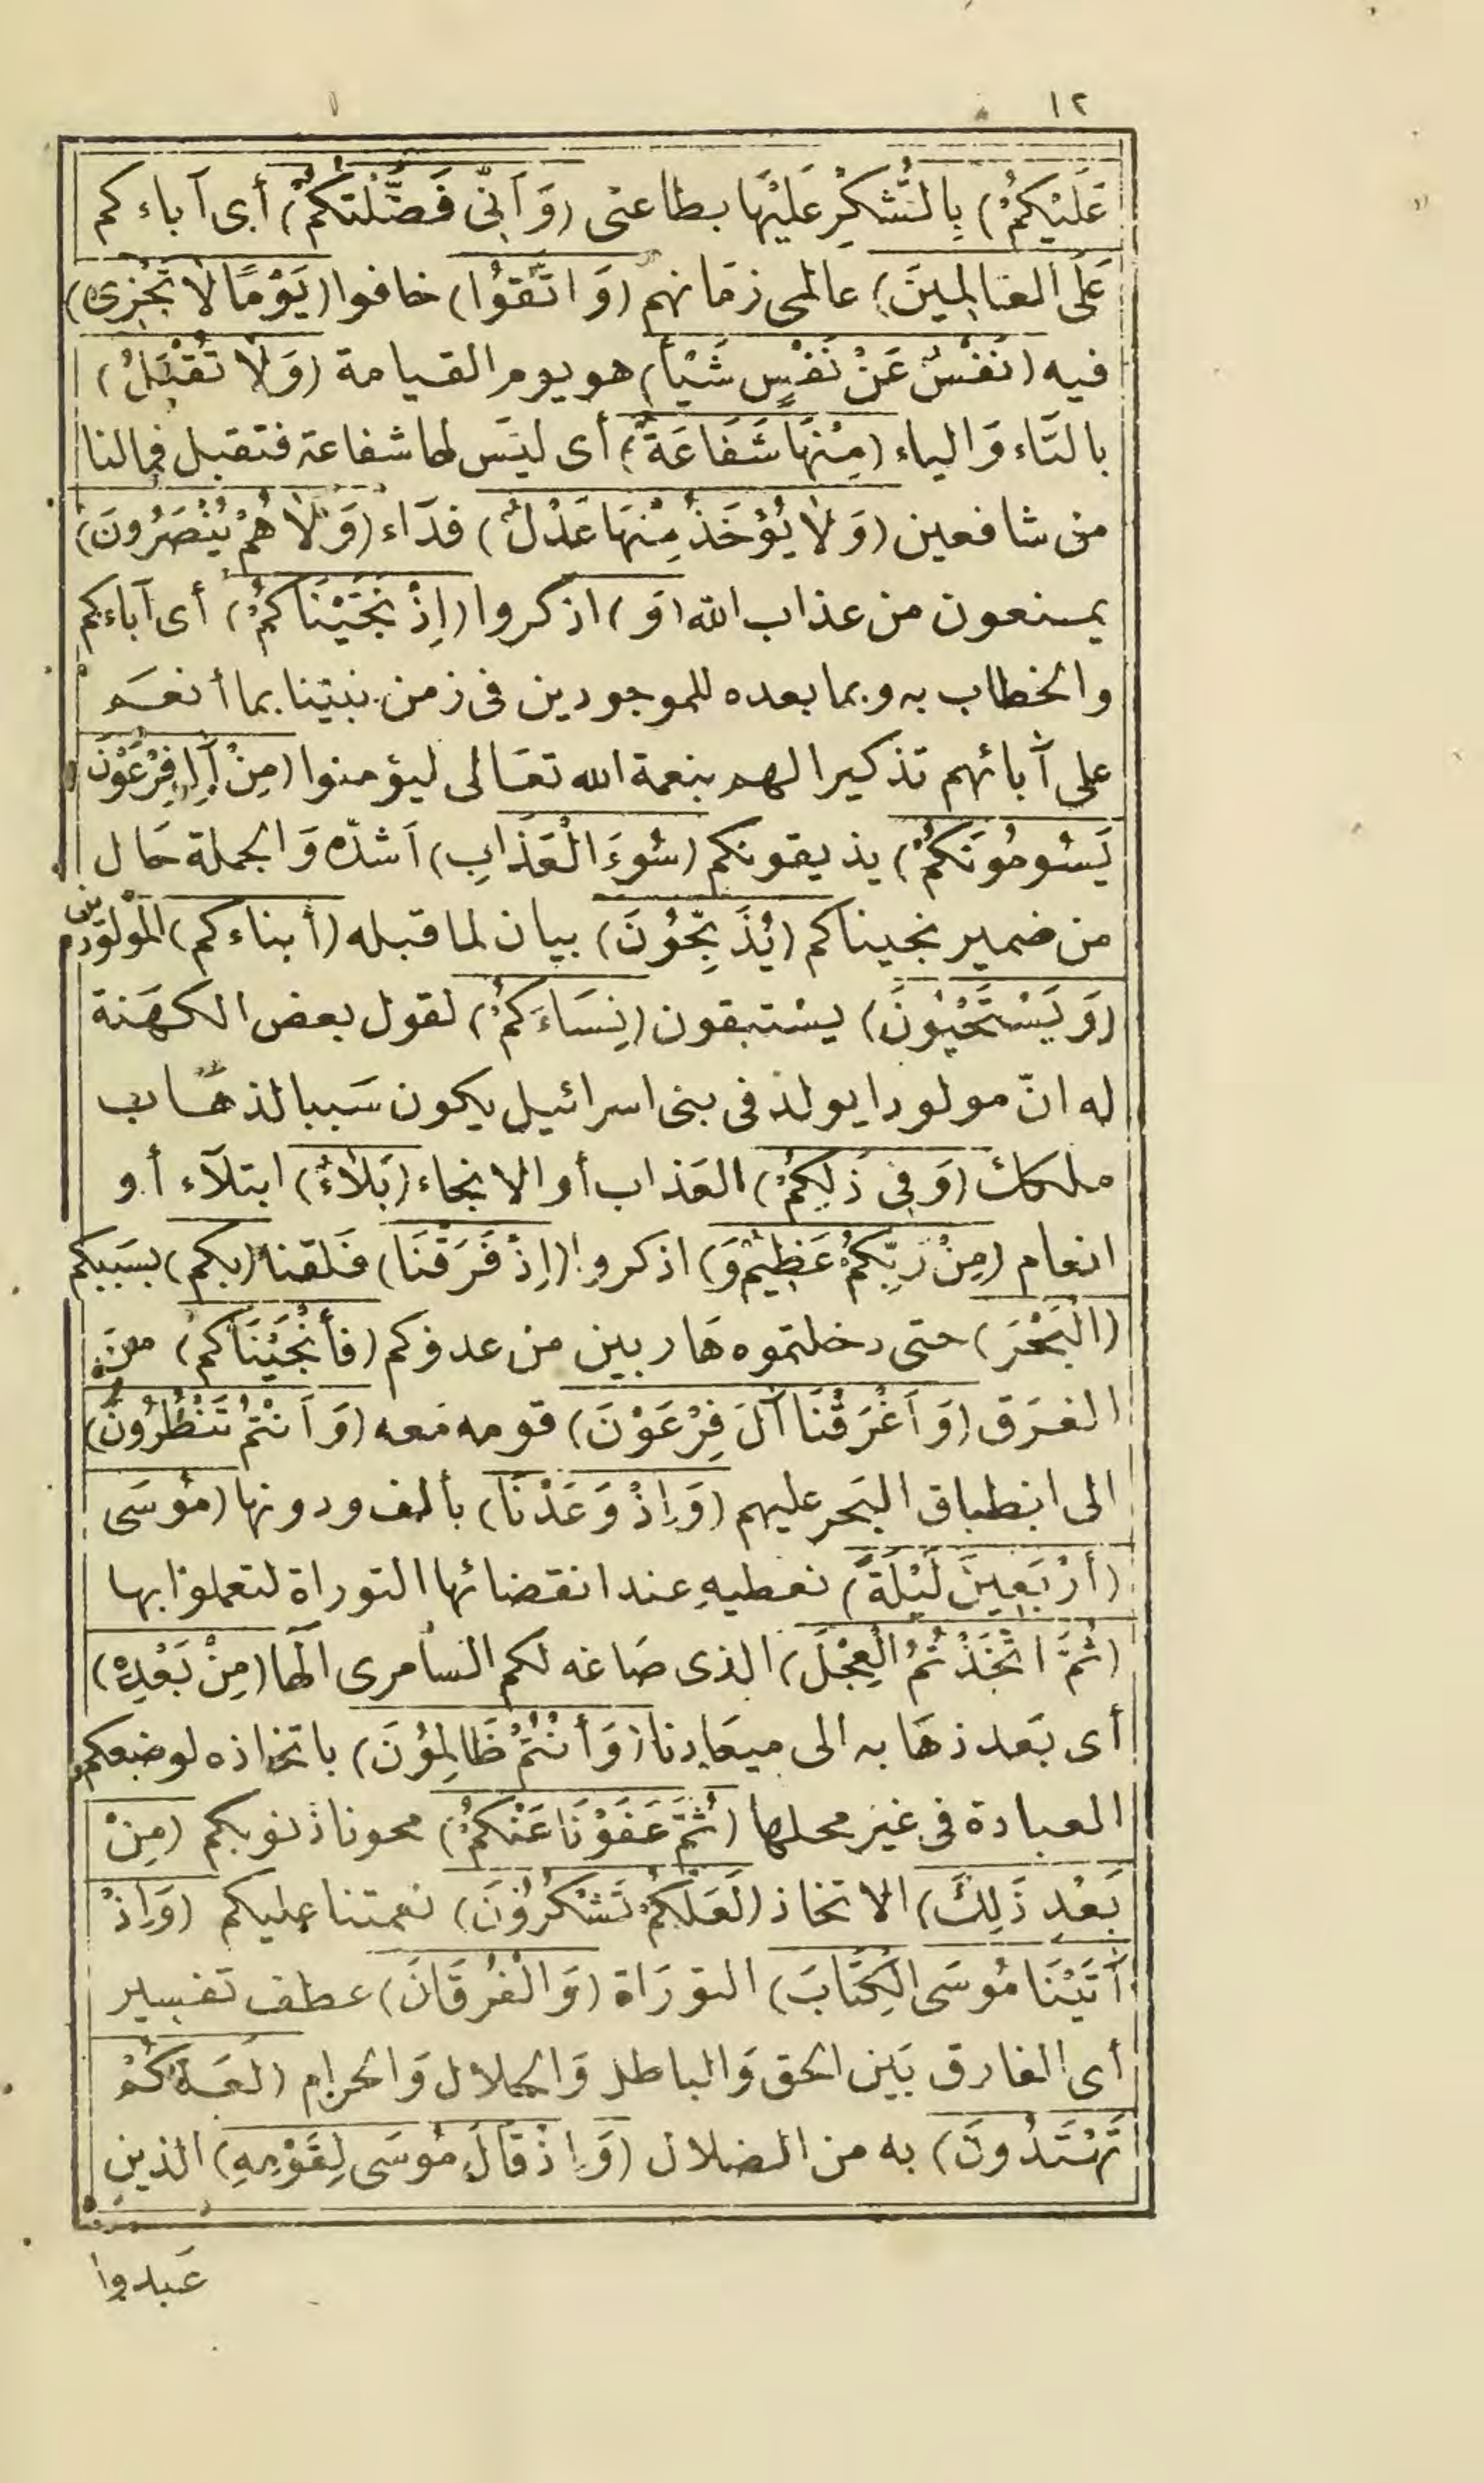 ١٢
عَلَيْكُمْ) بِالشُّكْرِ عَلَيْهَا بطاعتى (وَأَنِّى فَضَّلْتُكُمْ) أى آباءكم
عَلَى العَالَمِينَ) عالمى زمَانهم (وَاتَّقُوا) خافوا (يَوْمًا لاَ تَجْزِى)
فيه (نَفْسٌ عَنْ نَفْسٍ شَيْأً) هو يوم القيامة (وَلاَ تُقْبَلُ)
بالتَاء وَالياء (مِنْهَا شَفَاعَةٌ) أى ليَس لها شفاعة فتقبل فمالنا
من شافعين (وَلاَ يُؤْخَذُ مِنْهَا عَدْلٌ) فدَاء (وَلاَ هُمْ يُنْصَرُونَ)
يمنعون من عذاب الله (وَ) اذكروا (إِذْ نَجَّيْنَاكُمْ) أى آباءكم
والخطاب به وبما بعده للموجودين فى زمن نبيّنا بما أنعَم
على آبائهم تذكيرا لهم بنعمة الله تعَالى ليؤمنوا (مِنْ آلِ فِرْعَوْنَ
يَسُومُونَكُمْ) يذيقونكم (سُوءَ الْعَذَابِ) أَشدّه وَالجملة حَال
من ضمير نجيناكم (يُذَبِّحُونَ) بيان لما قبله (أبناءكم) المَوْلودين
(وَيَسْتَحْيُونَ) يستبقون (نِسَاءَكُمْ) لقول بعض الكهَنة
له انّ مولودا يولد فى بنى اسرائيل يكون سَببا لذهَاب
ملكك (وَفِى ذَلِكُمْ) العَذاب أو الانجاء (بَلاَءٌ) ابتلآء أو
انعام (مِنْ رَبِّكُمْ عَظِيمٌ وَ) اذكروا (إِذْ فَرَقْنَا) فَلقنا (بكم) بسَببكم
(الْبَحْرَ) حتى دخلتموه هَاربين من عدوكم (فأنْجَيْنَاكم) من
الغرَق (وَأَغْرَقْنَا آلَ فِرْعَوْنَ) قومه مَعه (وَأَنْتُمْ تَنْظُرُونَ)
الى انطباق البَحر عليهم (وَإِذْ وَعَدْنَا) بألف ودونها (مُوسَى
(أَرْبَعِينَ لَيْلَةً) نعطيهِ عند انقضائها التوراة لتعملوا بها
(ثُمَّ اتَّخَذْتُمُ الْعِجْلَ) الذى صَاغه لكم السَامرى الَها (مِنْ بَعْدِهِ)
أى بَعد ذهَابه الى ميعَادنا (وَأَنْتُمْ ظَالِمُونَ) باتخاذه لوضعكم
العبادة فى غيَر محلها (ثُمَّ عَفَوْنَا عَنْكُمْ) محونا ذنوبكم (مِنْ
بَعْدِ ذَلِكَ) الاتخاذ (لَعَلَّكُمْ تَشْكُرُونَ) نعمتنا عليكم (وَإِذْ
آتَيْنَا مُوسَى الْكِتَابَ) التورَاة (وَالْفُرْقَانَ) عطف تفسير
أى الفارق بَين الحق وَالباطل وَالحلال وَالحرام (لَعَلَّكُمْ
تَهْتَدُونَ) به من الضلال (وَإِذْ قَالَ مُوسَى لِقَوْمِهِ) الذين
عَبدوا